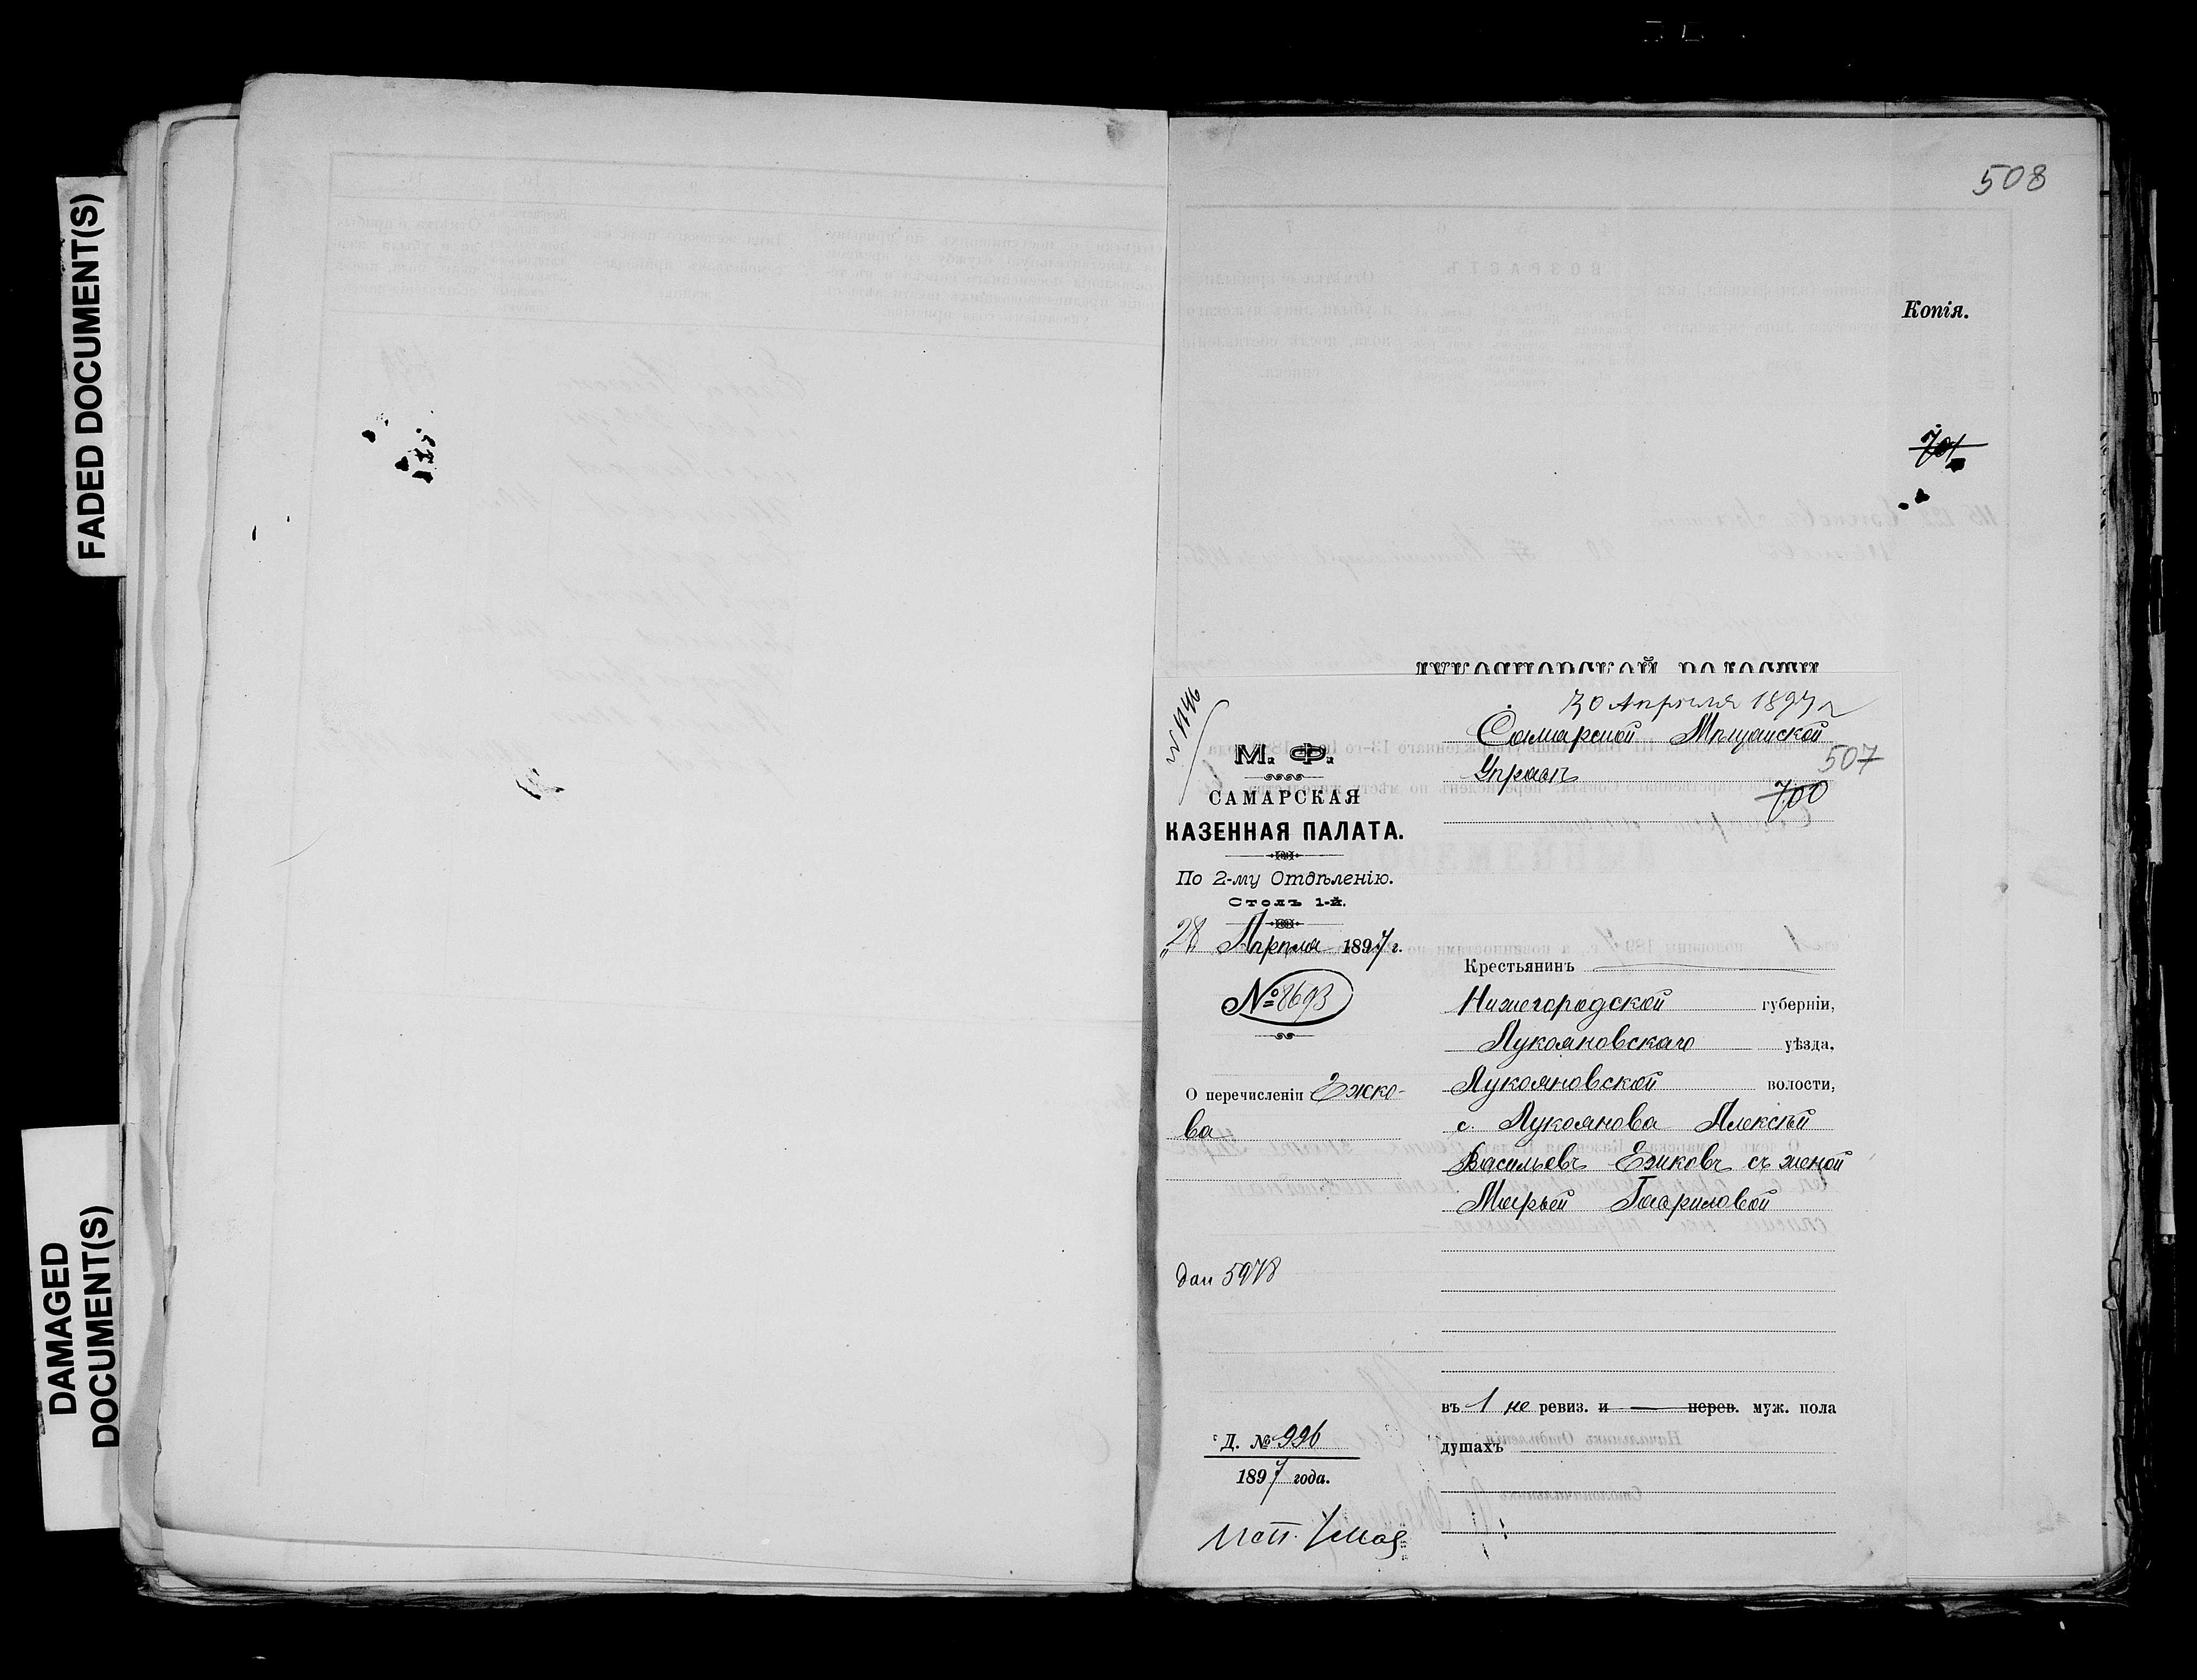 FADED DOCUMENT(S)
DAMAGED
DOCUMENT(S)
508
Копія.
701
30 Апрѣля 1897 г
Самарской Мѣщанской
Управѣ
507
700
М. Ф.
САМАРСКАЯ
КАЗЕННАЯ ПАЛАТА.
По 2-му Отдѣленію.
Столъ 1-й.
„28 Апрѣля 1897 г.
№ 8693
О перечисленіи Ежко-
ва
дѣл 5978
Д. № 996
1897 года.
Крестьянинъ
Нижегородской губерніи,
Лукояновскаго уѣзда,
Лукояновской волости,
с. Лукоянова Алексѣй
Васильевъ Ежковъ съ женой
Марьей Гавриловой
въ 1 не ревиз. и — перев. муж. пола
душахъ